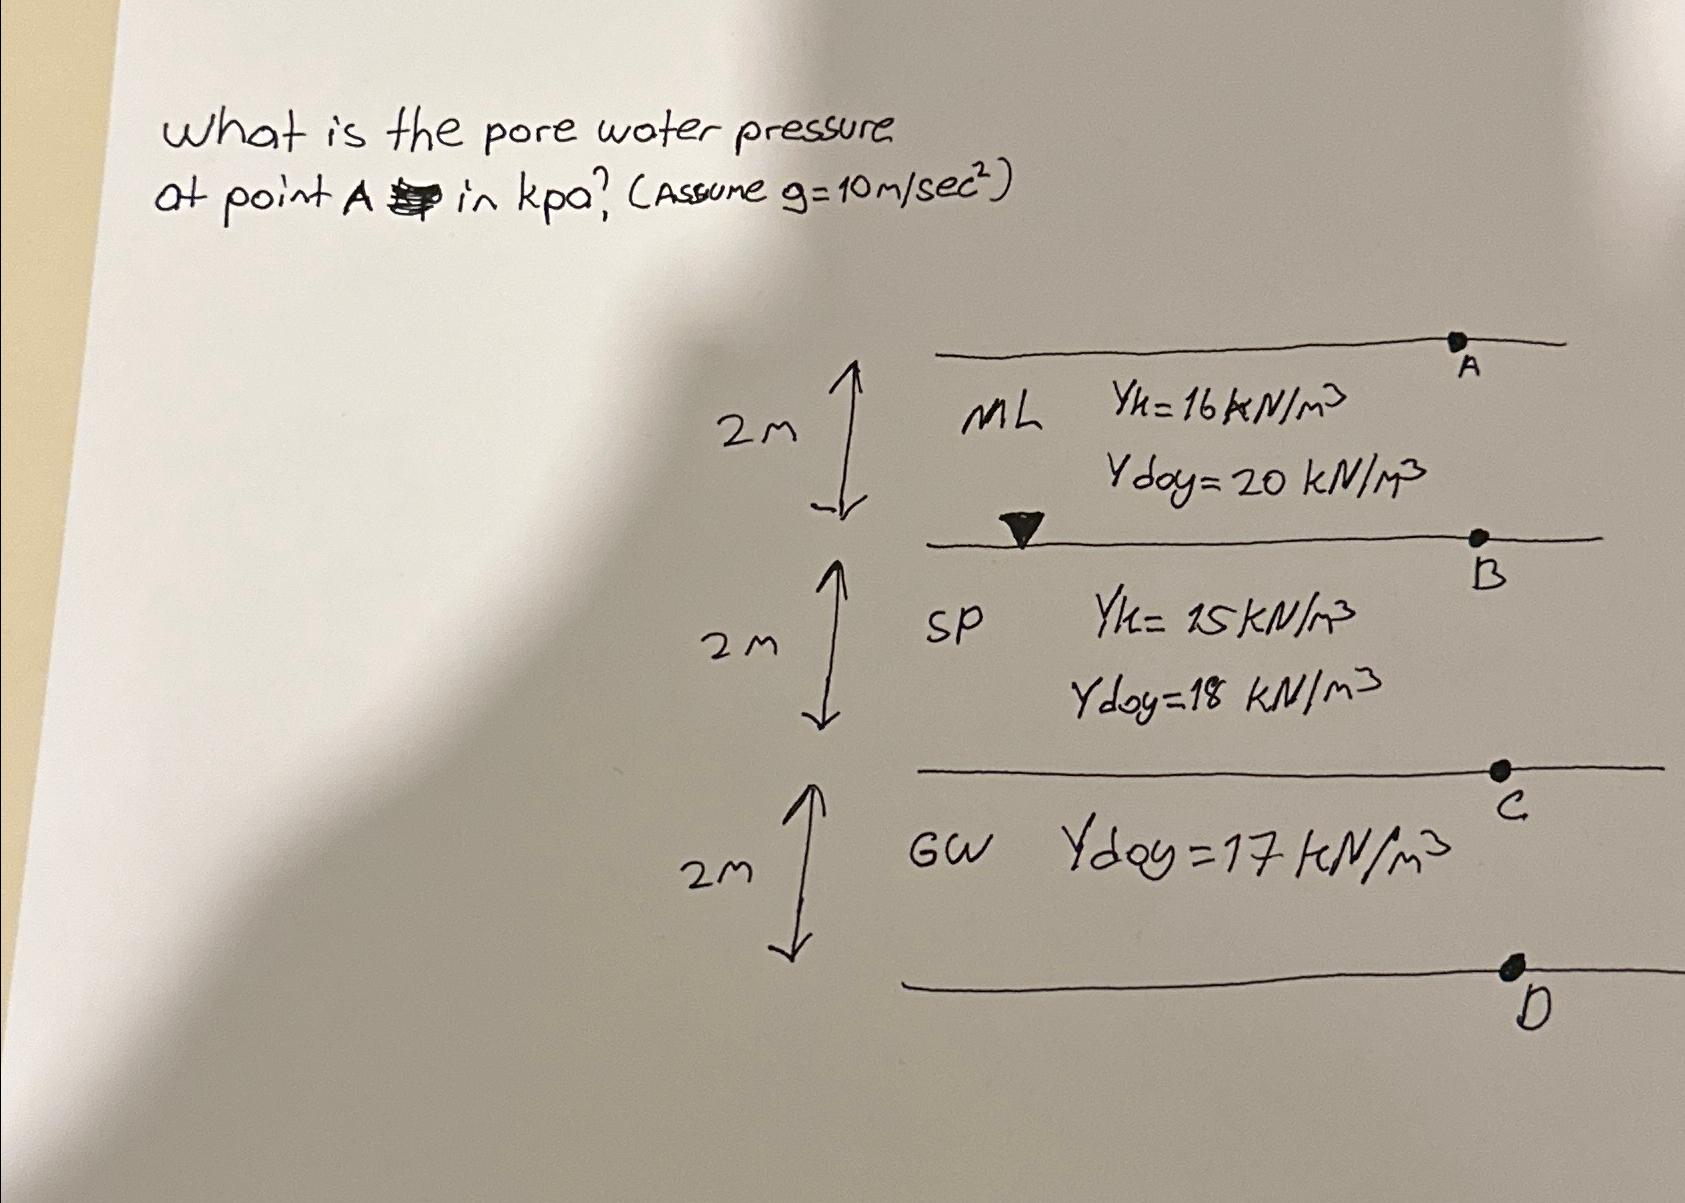 what is the pore water pressure
at point A in kpa? (Assume g=10m/sec²)
A
2m ML γk=16kN/m³
γdoy=20 kN/m³
B
2m SP γk= 15kN/m³
γdoy=18 kN/m³
C
2m GW γdoy=17 kN/m³
D